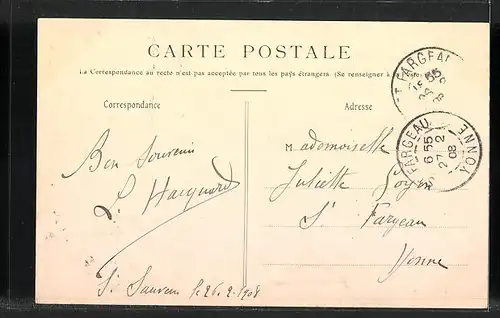 CARTE POSTALE
La Correspondance au recto n'est pas acceptée par tous les pays étrangers. (Se renseigner à
Correspondance
Adresse
Bon Souvenir
Mademoiselle
Juliette
St Fargeau
Yonne
St Sauveur le 26-2-1908
FARGEAU
55
FARGEAU YONNE
6 55
27 2
08